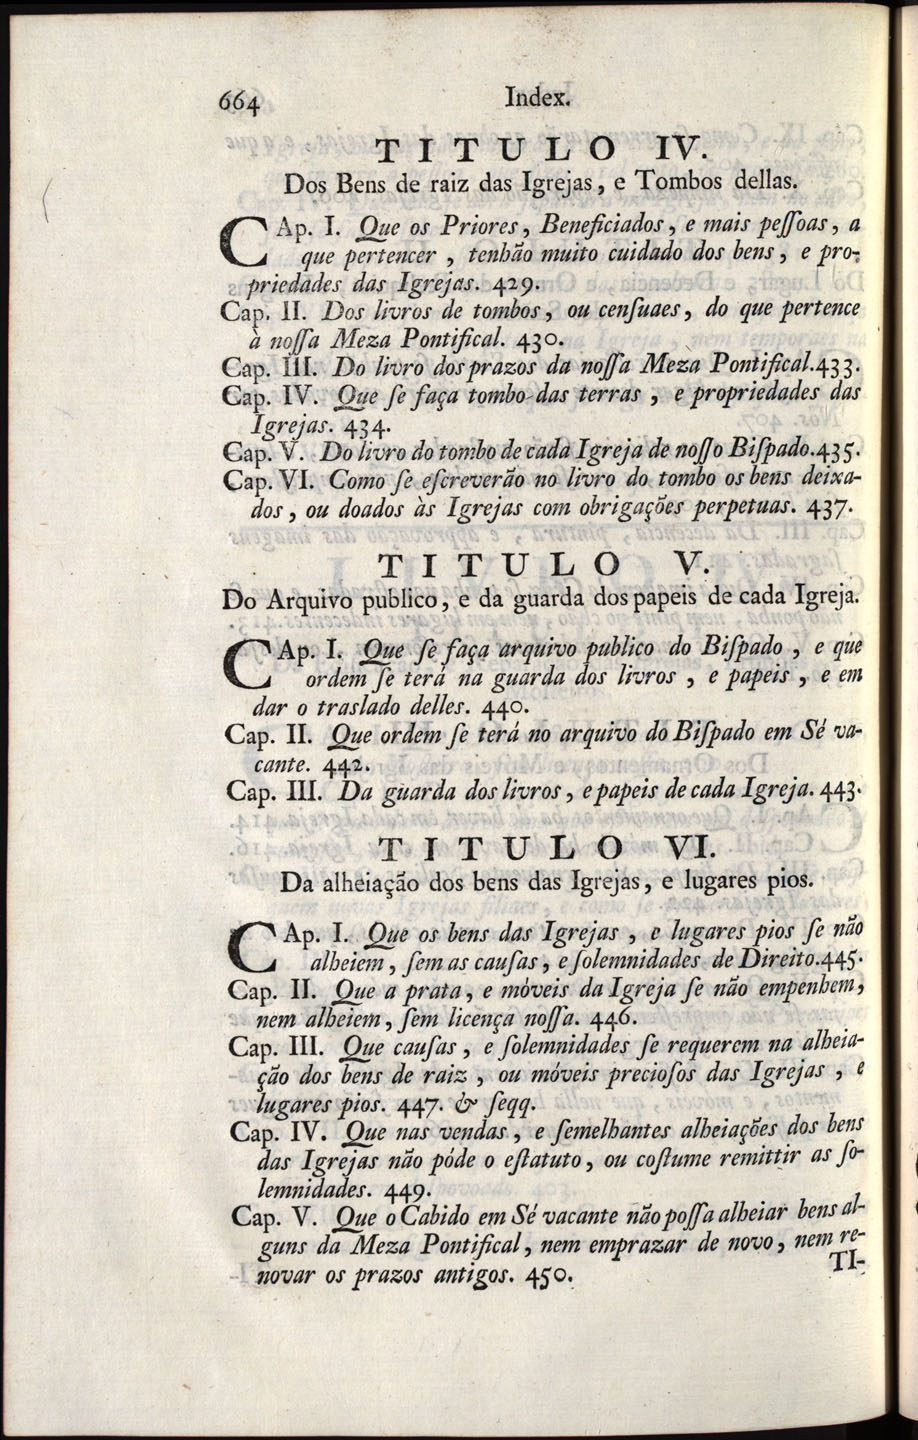 664 Index.
TITULO IV.
Dos Bens de raiz das Igrejas, e Tombos dellas.
CAp. I. Que os Priores, Beneficiados, e mais peſſoas, a
que pertencer , tenhão muito cuidado dos bens, e pro-
priedades das Igrejas. 429.
Cap. II. Dos livros de tombos, ou cenſuaes, do que pertence
à noſſa Meza Pontifical. 430.
Cap. III. Do livro dos prazos da noſſa Meza Pontifical. 433.
Cap. IV. Que ſe faça tombo das terras , e propriedades das
Igrejas. 434.
Cap. V. Do livro do tombo de cada Igreja de noſſo Biſpado. 435.
Cap. VI. Como ſe eſcreverão no livro do tombo os bens deixa-
dos, ou doados às Igrejas com obrigações perpetuas. 437.
TITULO V.
Do Arquivo publico, e da guarda dos papeis de cada Igreja.
CAp. I. Que ſe faça arquivo publico do Biſpado , e que
ordem ſe terá na guarda dos livros , e papeis , e em
dar o traslado delles. 440.
Cap. II. Que ordem ſe terá no arquivo do Biſpado em Sé va-
cante. 442.
Cap. III. Da guarda dos livros, e papeis de cada Igreja. 443.
TITULO VI.
Da alheiação dos bens das Igrejas, e lugares pios.
CAp. I. Que os bens das Igrejas , e lugares pios ſe não
alheiem, ſem as cauſas, e ſolemnidades de Direito. 445.
Cap. II. Que a prata, e móveis da Igreja ſe não empenhem,
nem alheiem, ſem licença noſſa. 446.
Cap. III. Que cauſas, e ſolemnidades ſe requerem na alheia-
ção dos bens de raiz , ou móveis precioſos das Igrejas , e
lugares pios. 447. & ſeqq.
Cap. IV. Que nas vendas, e ſemelhantes alheiações dos bens
das Igrejas não póde o eſtatuto, ou coſtume remittir as ſo-
lemnidades. 449.
Cap. V. Que o Cabido em Sé vacante não poſſa alheiar bens al-
guns da Meza Pontifical, nem emprazar de novo, nem re-
novar os prazos antigos. 450.
TI-